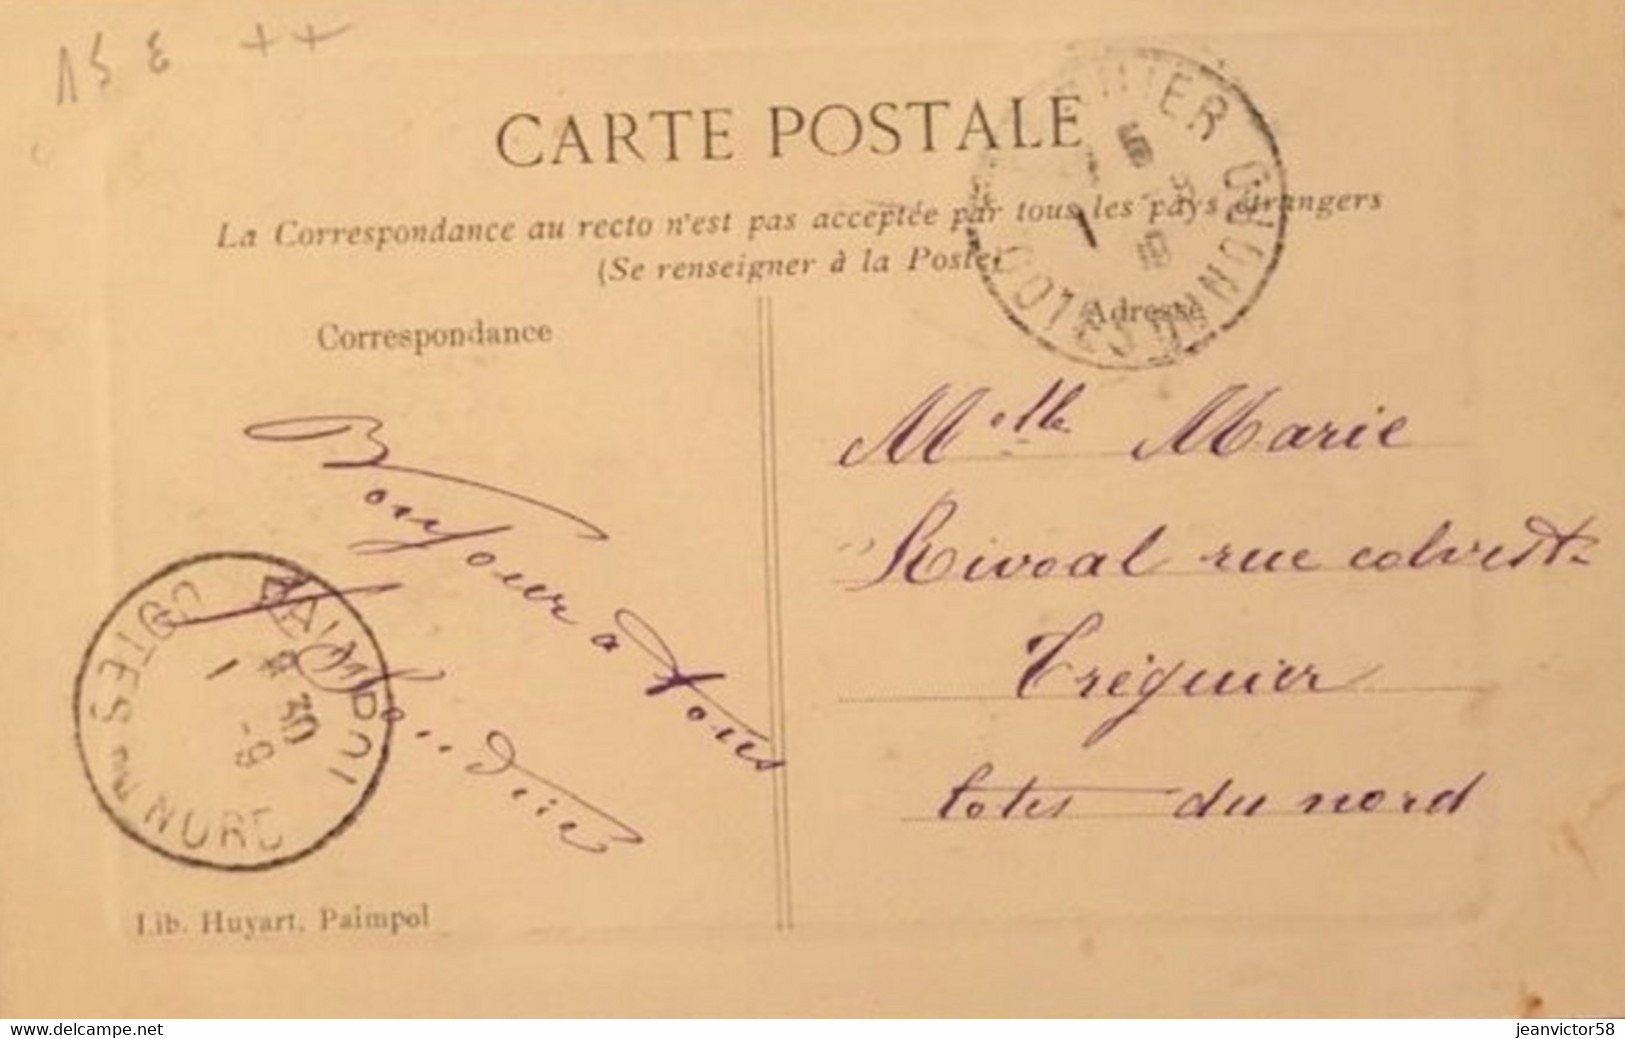 15 € ++
CARTE POSTALE
La Correspondance au recto n'est pas acceptée par tous les pays étrangers
(Se renseigner à la Poste)
Correspondance
Adresse
Bonjour à tous
Melle Marie
Rivoal rue colvest
Tréguier
Cotes du nord
PAIMPOL
COTES DU NORD
1 -9
COTES DU NORD
Lib. Huyart, Paimpol
www.delcampe.net
jeanvictor58